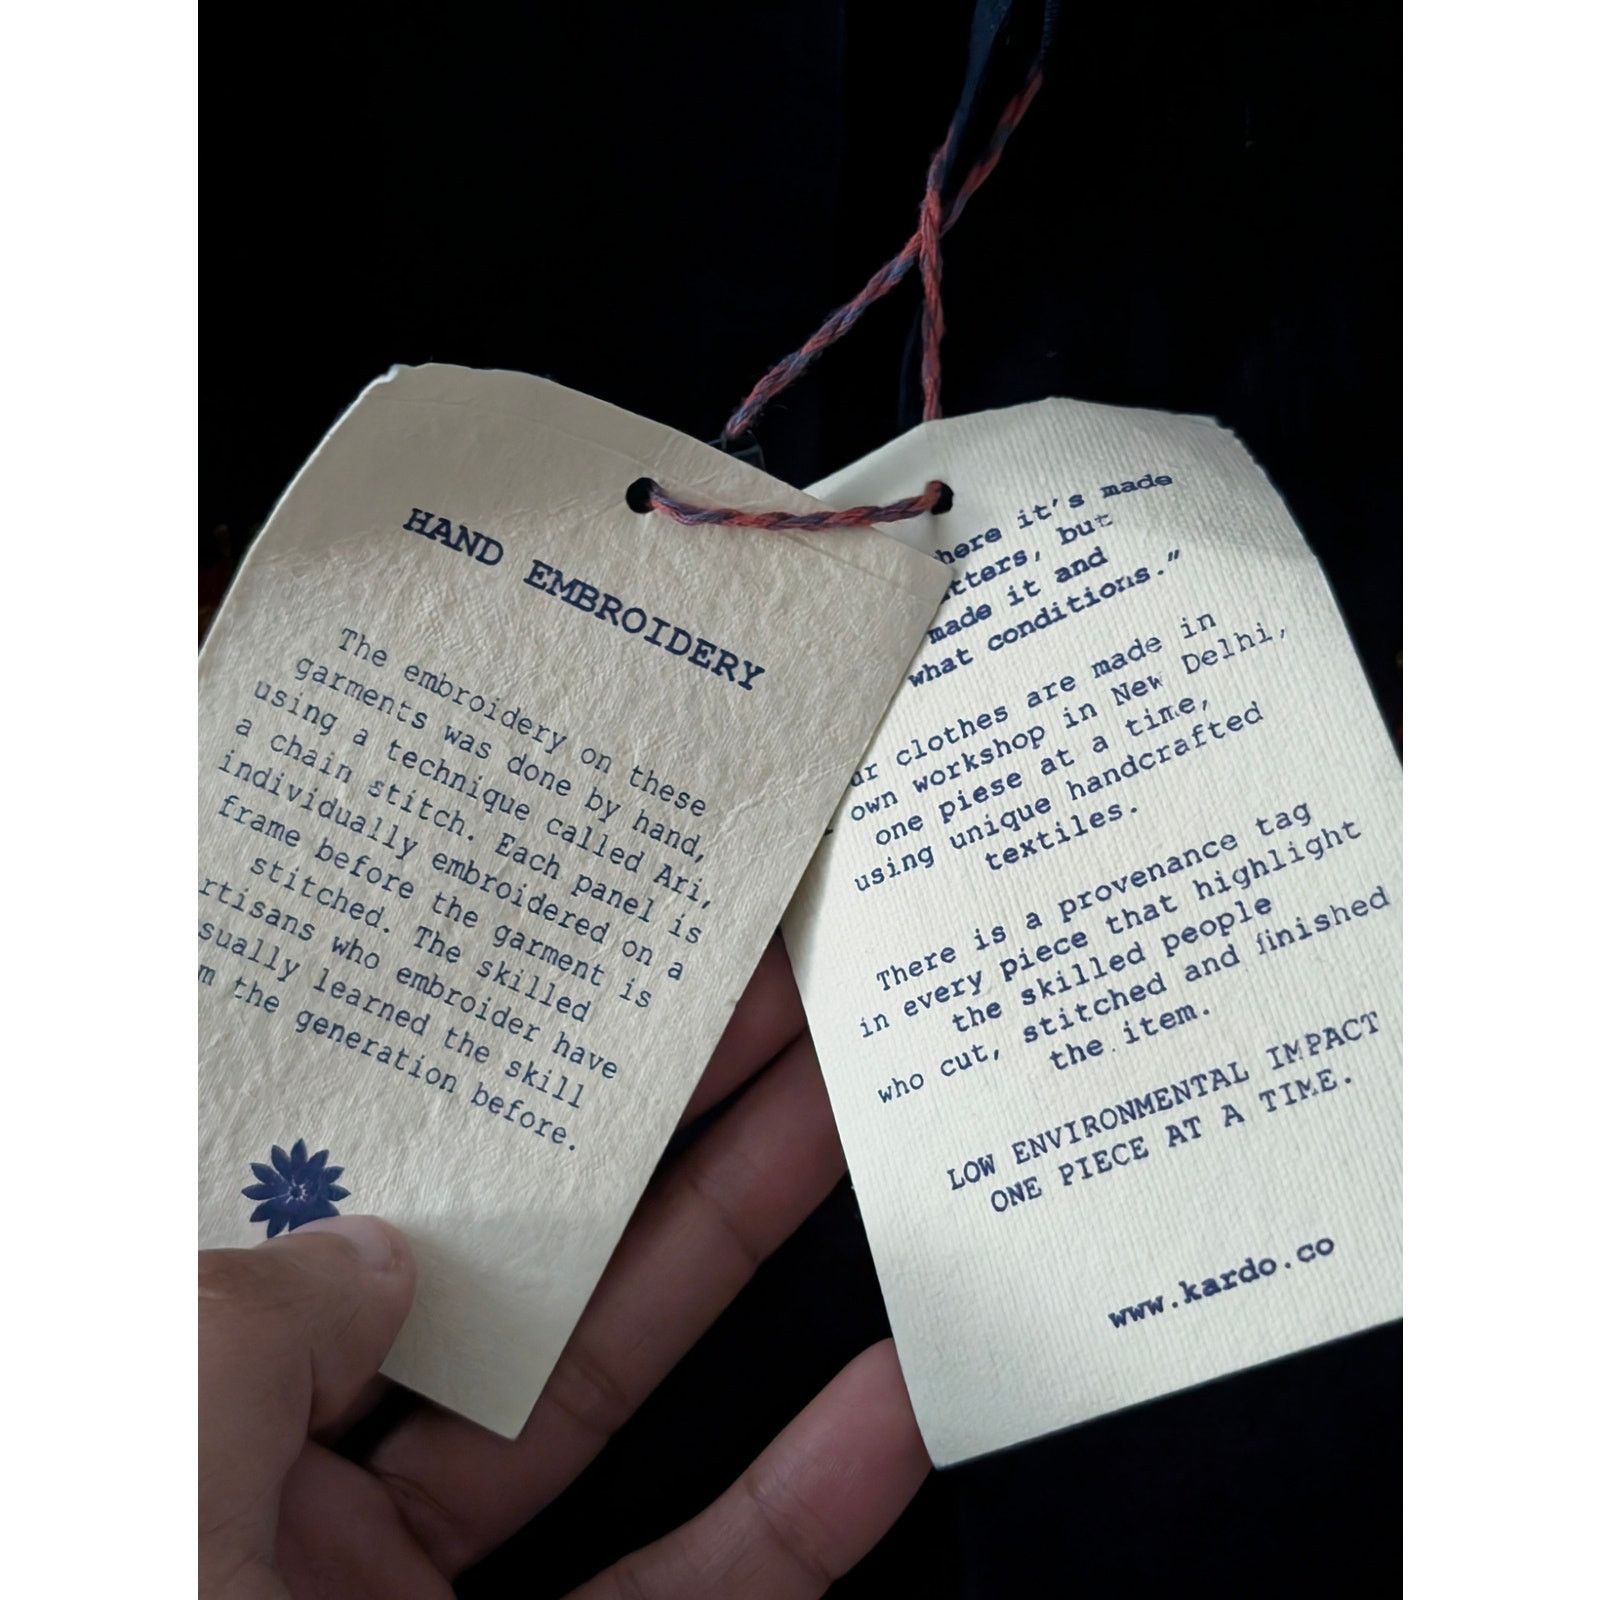 HAND EMBROIDERY
The embroidery on these
garments was done by hand,
using a technique called Ari,
a chain stitch. Each panel is
individually embroidered on a
frame before the garment is
stitched. The skilled
rtisans who embroider have
sually learned the skill
m the generation before.
here it's made
tters, but
made it and
what conditions."
ur clothes are made in
own workshop in New Delhi,
one piese at a time,
using unique handcrafted
textiles.
There is a provenance tag
in every piece that highlight
the skilled people
who cut, stitched and finished
the item.
LOW ENVIRONMENTAL IMPACT
ONE PIECE AT A TIME.
www.kardo.co